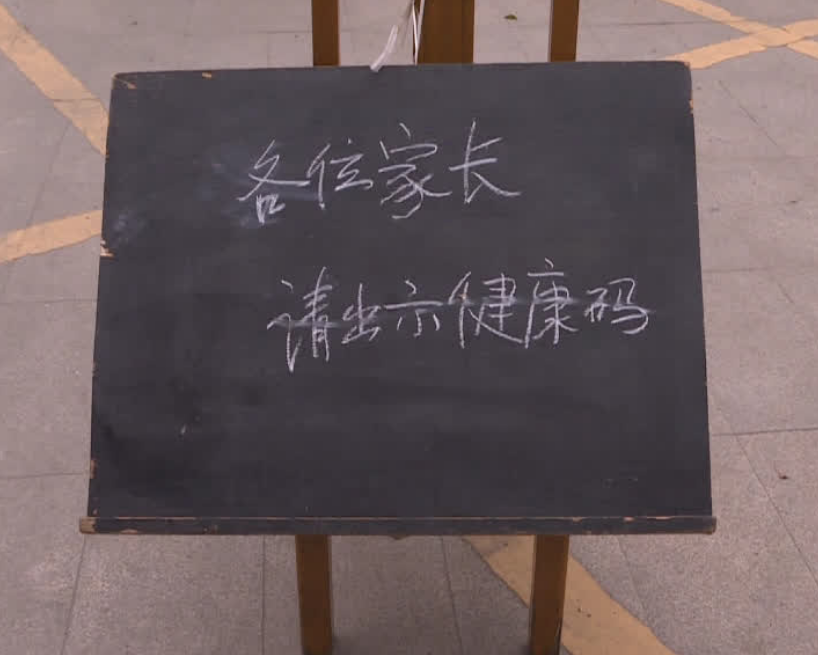 各位家长
请出示健康码